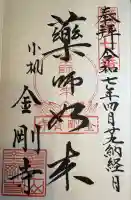 奉拝 令和七年四月 納経日
薬師如来
小机 金剛寺